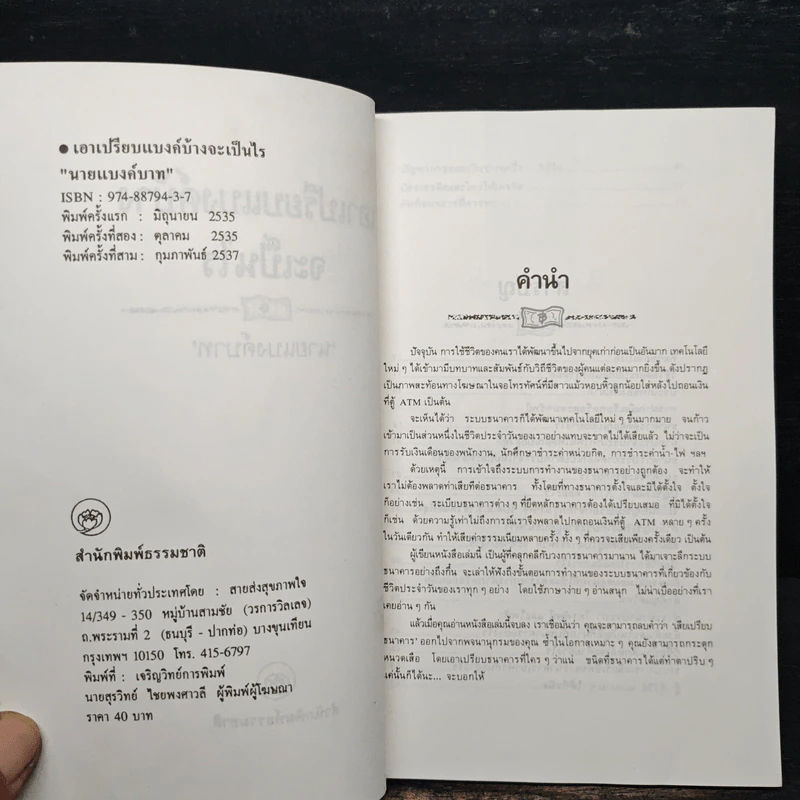 ● เอาเปรียบแบงค์บ้างจะเป็นไร
"นายแบงค์บาท"
ISBN : 974-88794-3-7
พิมพ์ครั้งแรก : มิถุนายน 2535
พิมพ์ครั้งที่สอง : ตุลาคม 2535
พิมพ์ครั้งที่สาม : กุมภาพันธ์ 2537
สำนักพิมพ์ธรรมชาติ
จัดจำหน่ายทั่วประเทศโดย : สายส่งสุขภาพใจ
14/349 - 350 หมู่บ้านสามชัย (วรการวิลเลจ)
ถ.พระรามที่ 2 (ธนบุรี - ปากท่อ) บางขุนเทียน
กรุงเทพฯ 10150 โทร. 415-6797
พิมพ์ที่ : เจริญวิทย์การพิมพ์
นายสุรวิทย์ ไชยพงศาวลี ผู้พิมพ์ผู้โฆษณา
ราคา 40 บาท
คำนำ
ปัจจุบัน การใช้ชีวิตของคนเราได้พัฒนาขึ้นไปจากยุคเก่าก่อนเป็นอันมาก เทคโนโลยี
ใหม่ ๆ ได้เข้ามามีบทบาทและสัมพันธ์กับวิถีชีวิตของผู้คนแต่ละคนมากยิ่งขึ้น ดังปรากฏ
เป็นภาพสะท้อนทางโฆษณาในจอโทรทัศน์ที่มีสาวแม้วหอบหิ้วลูกน้อยใส่หลังไปถอนเงิน
ที่ตู้ ATM เป็นต้น
จะเห็นได้ว่า ระบบธนาคารก็ได้พัฒนาเทคโนโลยีใหม่ ๆ ขึ้นมากมาย จนก้าว
เข้ามาเป็นส่วนหนึ่งในชีวิตประจำวันของเราอย่างแทบจะขาดไม่ได้เสียแล้ว ไม่ว่าจะเป็น
การรับเงินเดือนของพนักงาน, นักศึกษาชำระค่าหน่วยกิต, การชำระค่าน้ำ-ไฟ ฯลฯ
ด้วยเหตุนี้ การเข้าใจถึงระบบการทำงานของธนาคารอย่างถูกต้อง จะทำให้
เราไม่ต้องพลาดท่าเสียทีต่อธนาคาร ทั้งโดยที่ทางธนาคารตั้งใจและมิได้ตั้งใจ ตั้งใจ
ก็อย่างเช่น ระเบียบธนาคารต่าง ๆ ที่ยึดหลักธนาคารต้องได้เปรียบเสมอ ที่มิได้ตั้งใจ
ก็เช่น ด้วยความรู้เท่าไม่ถึงการณ์เราจึงพลาดไปกดถอนเงินที่ตู้ ATM หลาย ๆ ครั้ง
ในวันเดียวกัน ทำให้เสียค่าธรรมเนียมหลายครั้ง ทั้ง ๆ ที่ควรจะเสียเพียงครั้งเดียว เป็นต้น
ผู้เขียนหนังสือเล่มนี้ เป็นผู้ที่คลุกคลีกับวงการธนาคารมานาน ได้มาเจาะลึกระบบ
ธนาคารอย่างถึงกึ๋น จะเล่าให้ฟังถึงขั้นตอนการทำงานของระบบธนาคารที่เกี่ยวข้องกับ
ชีวิตประจำวันของเราทุก ๆ อย่าง โดยใช้ภาษาง่าย ๆ อ่านสนุก ไม่น่าเบื่ออย่างที่เรา
เคยอ่าน ๆ กัน
แล้วเมื่อคุณอ่านหนังสือเล่มนี้จบลง เราเชื่อมั่นว่า คุณจะสามารถลบคำว่า 'เสียเปรียบ
ธนาคาร' ออกไปจากพจนานุกรมของคุณ ซ้ำในโอกาสเหมาะ ๆ คุณยังสามารถกระตุก
หนวดเสือ โดยเอาเปรียบธนาคารที่ใคร ๆ ว่าแน่ ชนิดที่ธนาคารได้แต่ทำตาปริบ ๆ
แค่นั้นก็ได้นะ... จะบอกให้